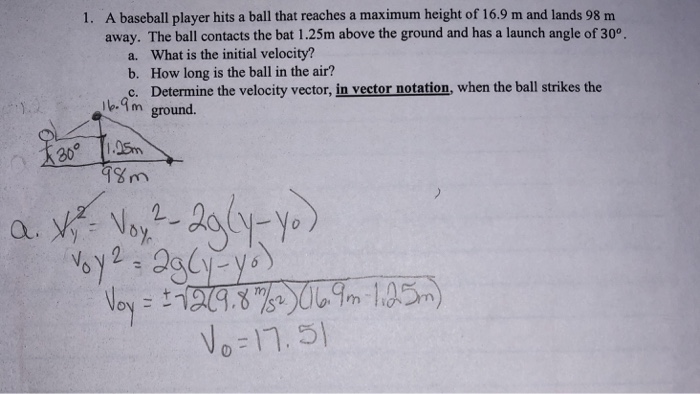 1. A baseball player hits a ball that reaches a maximum height of 16.9 m and lands 98 m
away. The ball contacts the bat 1.25m above the ground and has a launch angle of 30°.
a. What is the initial velocity?
b. How long is the ball in the air?
c. Determine the velocity vector, in vector notation, when the ball strikes the
ground.
16.9m
30° 1.25m
98m
a. Vy² = Voy² - 2g(y-yo)
Voy² = 2g(y-yo)
Voy = ±√2(9.8 m/s²)(16.9m-1.25m)
Vo = 17.51